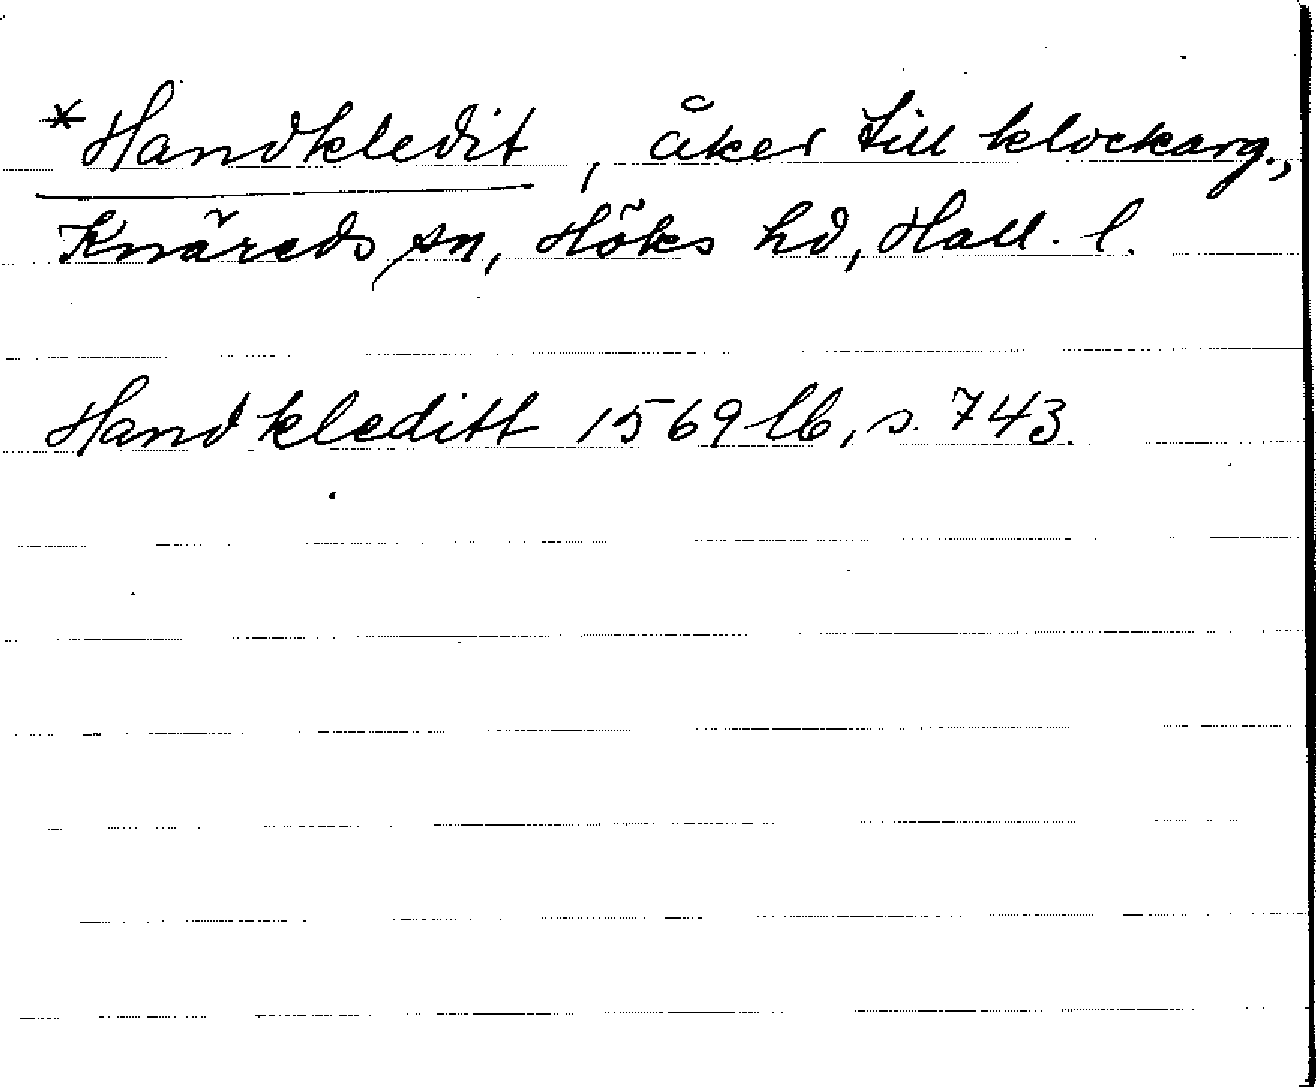 *Handkledit, åker till klockarg.,
Knäreds sn, Höks hd, Hall. l.
Handkleditt 1569 lb, s. 743.